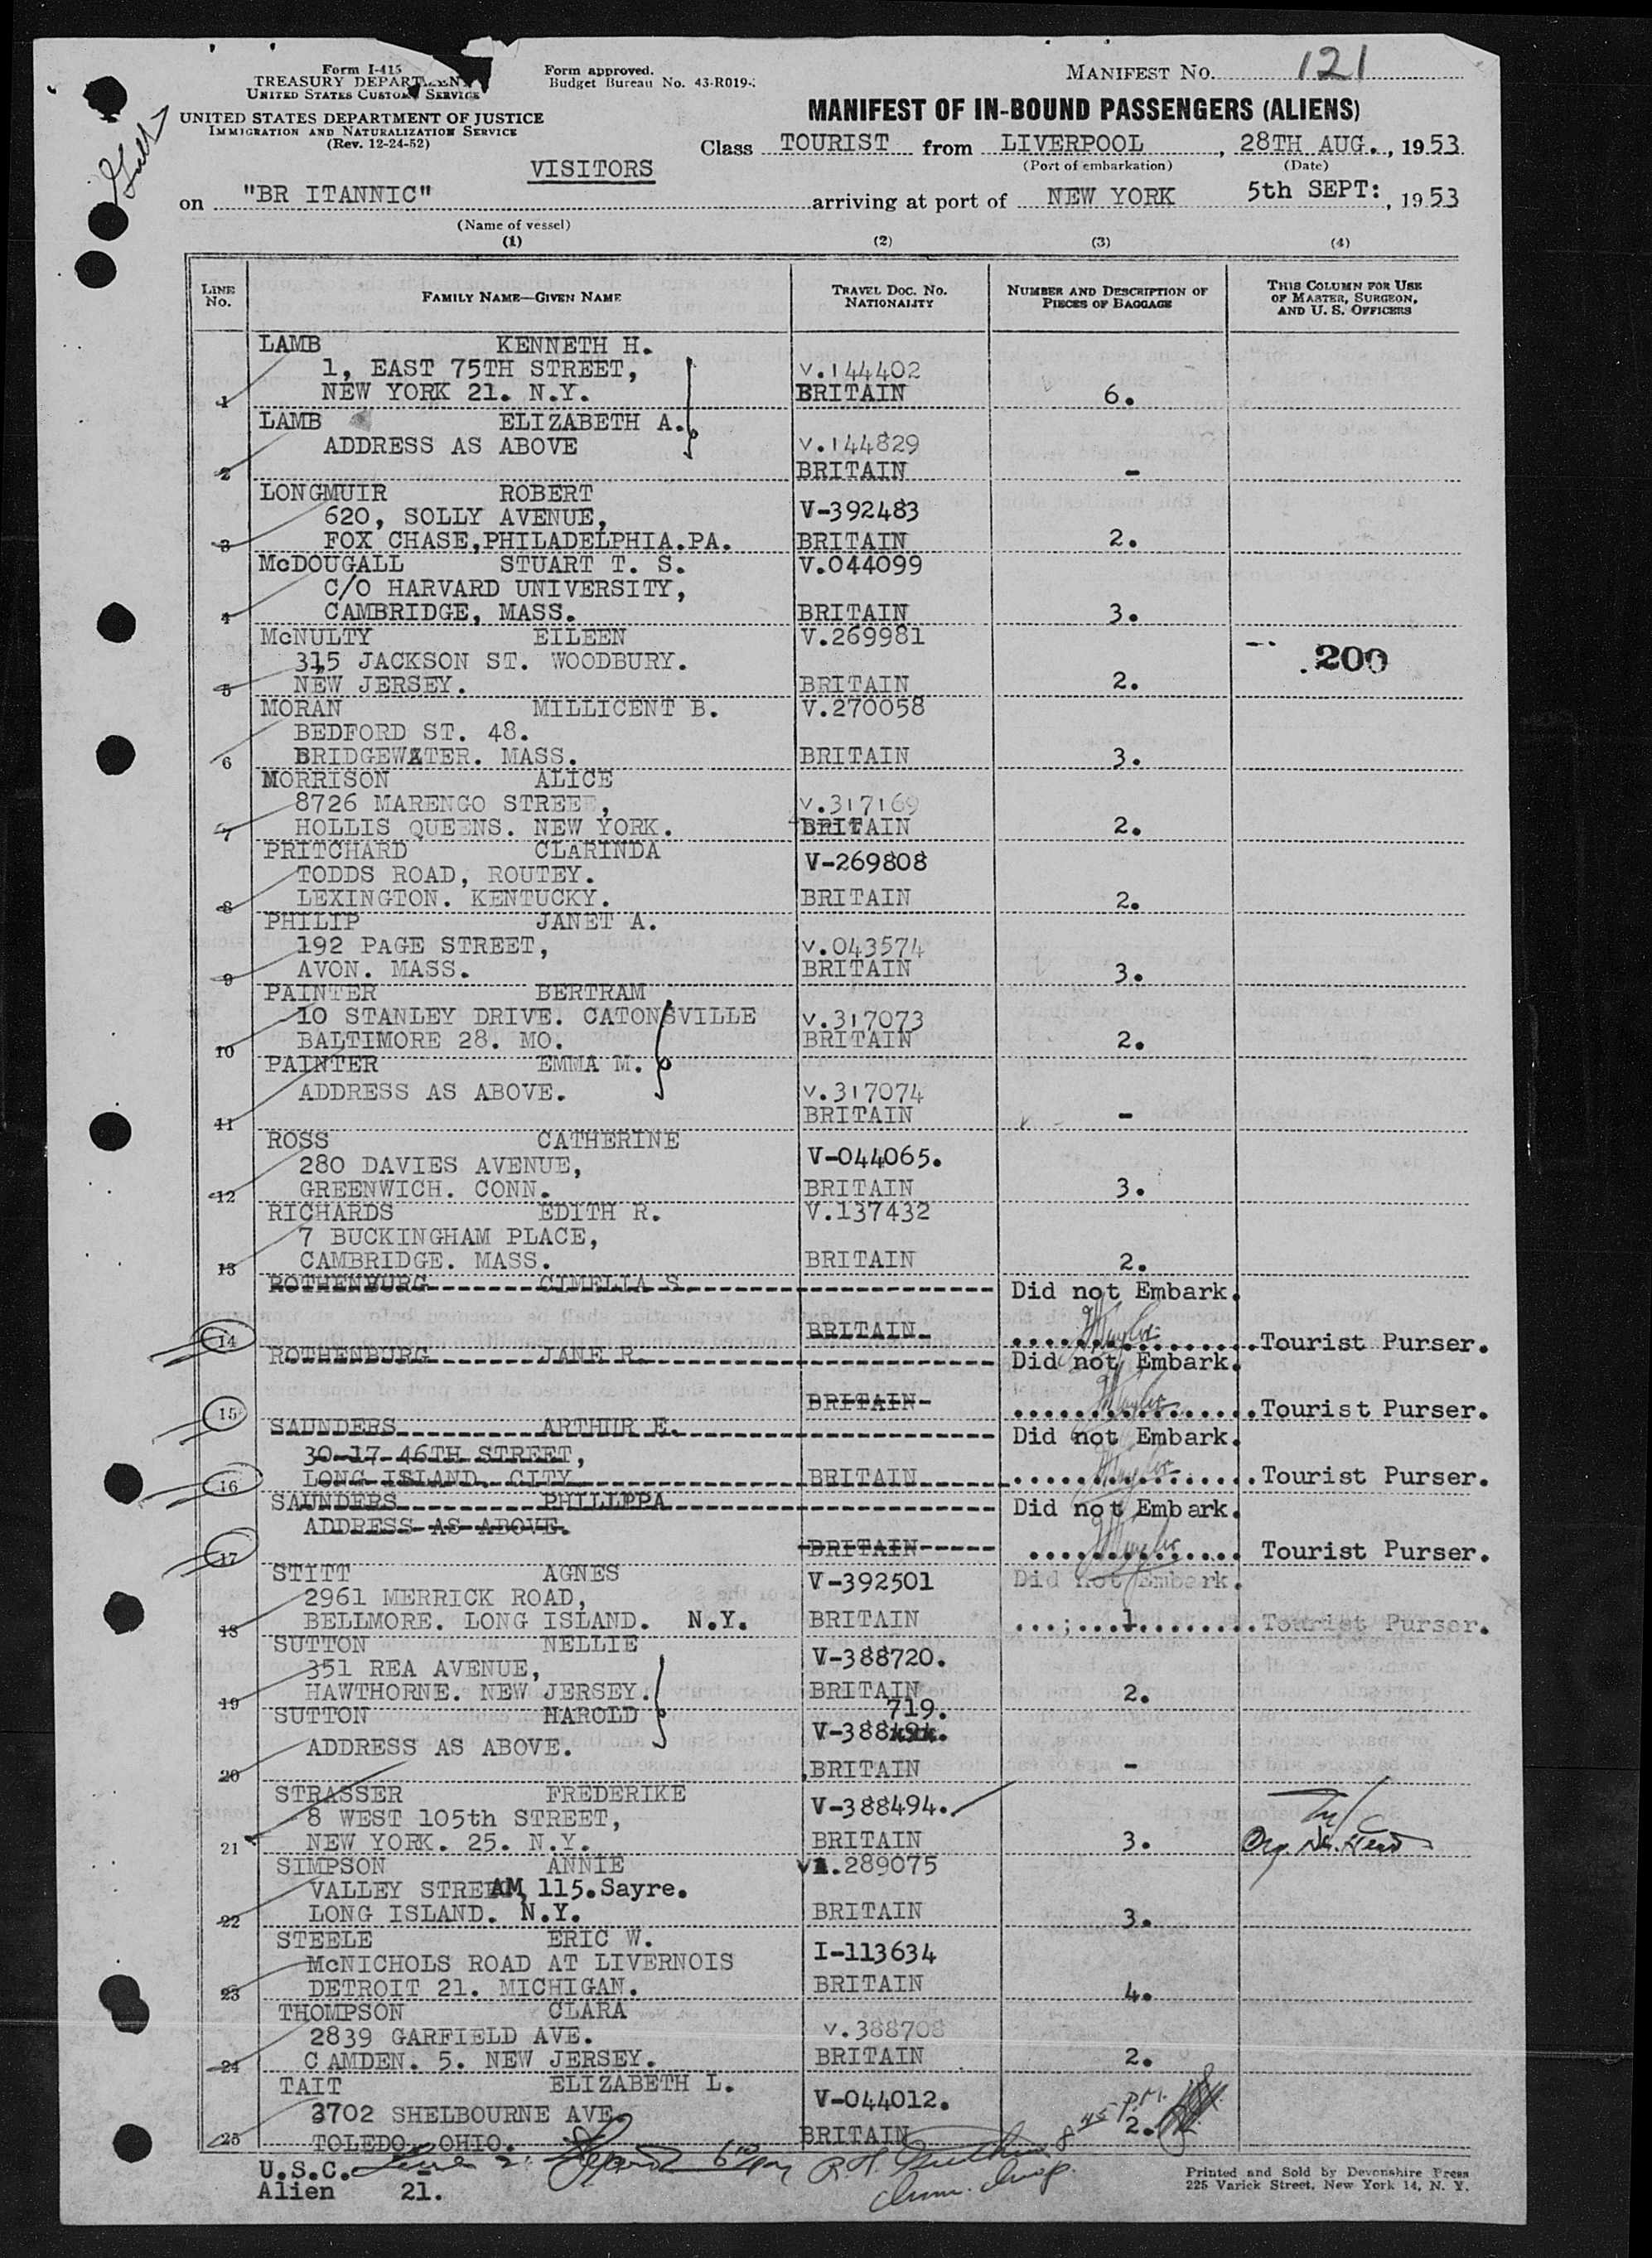 Form I-415
TREASURY DEPARTMENT
UNITED STATES CUSTOMS SERVICE
UNITED STATES DEPARTMENT OF JUSTICE
IMMIGRATION AND NATURALIZATION SERVICE
(Rev. 12-24-52)
Form approved.
Budget Bureau No. 43-R019-
MANIFEST NO. 121
MANIFEST OF IN-BOUND PASSENGERS (ALIENS)
Class TOURIST from LIVERPOOL, 28TH AUG., 1953
(Port of embarkation) (Date)
VISITORS
on "BR ITANNIC" arriving at port of NEW YORK 5th SEPT:, 1953
(Name of vessel)
(1) (2) (3) (4)
LINE No. FAMILY NAME—GIVEN NAME TRAVEL DOC. NO. NATIONALITY NUMBER AND DESCRIPTION OF PIECES OF BAGGAGE THIS COLUMN FOR USE OF MASTER, SURGEON, AND U. S. OFFICERS
LAMB KENNETH H.
1, EAST 75TH STREET, v.144402
1 NEW YORK 21. N.Y. BRITAIN 6.
LAMB ELIZABETH A.
ADDRESS AS ABOVE v.144829
2 BRITAIN -
LONGMUIR ROBERT
620, SOLLY AVENUE, V-392483
3 FOX CHASE,PHILADELPHIA.PA. BRITAIN 2.
McDOUGALL STUART T. S. V.044099
C/O HARVARD UNIVERSITY,
4 CAMBRIDGE, MASS. BRITAIN 3.
McNULTY EILEEN V.269981
315 JACKSON ST. WOODBURY. .200
5 NEW JERSEY. BRITAIN 2.
MORAN MILLICENT B. V.270058
BEDFORD ST. 48.
6 BRIDGEWATER. MASS. BRITAIN 3.
MORRISON ALICE
8726 MARENGO STREET, v.317169
7 HOLLIS QUEENS. NEW YORK. BRITAIN 2.
PRITCHARD CLARINDA
TODDS ROAD, ROUTEY. V-269808
8 LEXINGTON. KENTUCKY. BRITAIN 2.
PHILIP JANET A.
192 PAGE STREET, v.043574
9 AVON. MASS. BRITAIN 3.
PAINTER BERTRAM
10 STANLEY DRIVE. CATONSVILLE v.317073
10 BALTIMORE 28. MO. BRITAIN 2.
PAINTER EMMA M.
ADDRESS AS ABOVE. v.317074
11 BRITAIN -
ROSS CATHERINE
280 DAVIES AVENUE, V-044065.
12 GREENWICH. CONN. BRITAIN 3.
RICHARDS EDITH R. V.137432
7 BUCKINGHAM PLACE,
13 CAMBRIDGE. MASS. BRITAIN 2.
ROTHENBURG CIMELIA S. Did not Embark.
14 BRITAIN Tourist Purser.
ROTHENBURG JANE R. Did not Embark.
15 BRITAIN Tourist Purser.
SAUNDERS ARTHUR E. Did not Embark.
30-17-46TH STREET,
16 LONG ISLAND. CITY BRITAIN Tourist Purser.
SAUNDERS PHILLPPA Did not Embark.
ADDRESS AS ABOVE.
17 BRITAIN Tourist Purser.
STITT AGNES V-392501 Did not Embark.
2961 MERRICK ROAD,
18 BELLMORE. LONG ISLAND. N.Y. BRITAIN 1 Tourist Purser.
SUTTON NELLIE
351 REA AVENUE, V-388720.
19 HAWTHORNE. NEW JERSEY. BRITAIN 2.
SUTTON HAROLD 719.
V-388494.
ADDRESS AS ABOVE.
20 BRITAIN -
STRASSER FREDERIKE
8 WEST 105th STREET, V-388494.
21 NEW YORK. 25. N.Y. BRITAIN 3.
SIMPSON ANNIE v1.289075
VALLEY STREAM, 115.Sayre.
22 LONG ISLAND. N.Y. BRITAIN 3.
STEELE ERIC W.
McNICHOLS ROAD AT LIVERNOIS I-113634
23 DETROIT 21. MICHIGAN. BRITAIN 4.
THOMPSON CLARA
2839 GARFIELD AVE. v.388708
24 C AMDEN. 5. NEW JERSEY. BRITAIN 2.
TAIT ELIZABETH L.
3702 SHELBOURNE AVE. V-044012.
25 TOLEDO. OHIO. BRITAIN 2.
8 45 P.M.
U.S.C. -
Alien 21.
Printed and Sold by Devonshire Press
225 Varick Street, New York 14, N. Y.